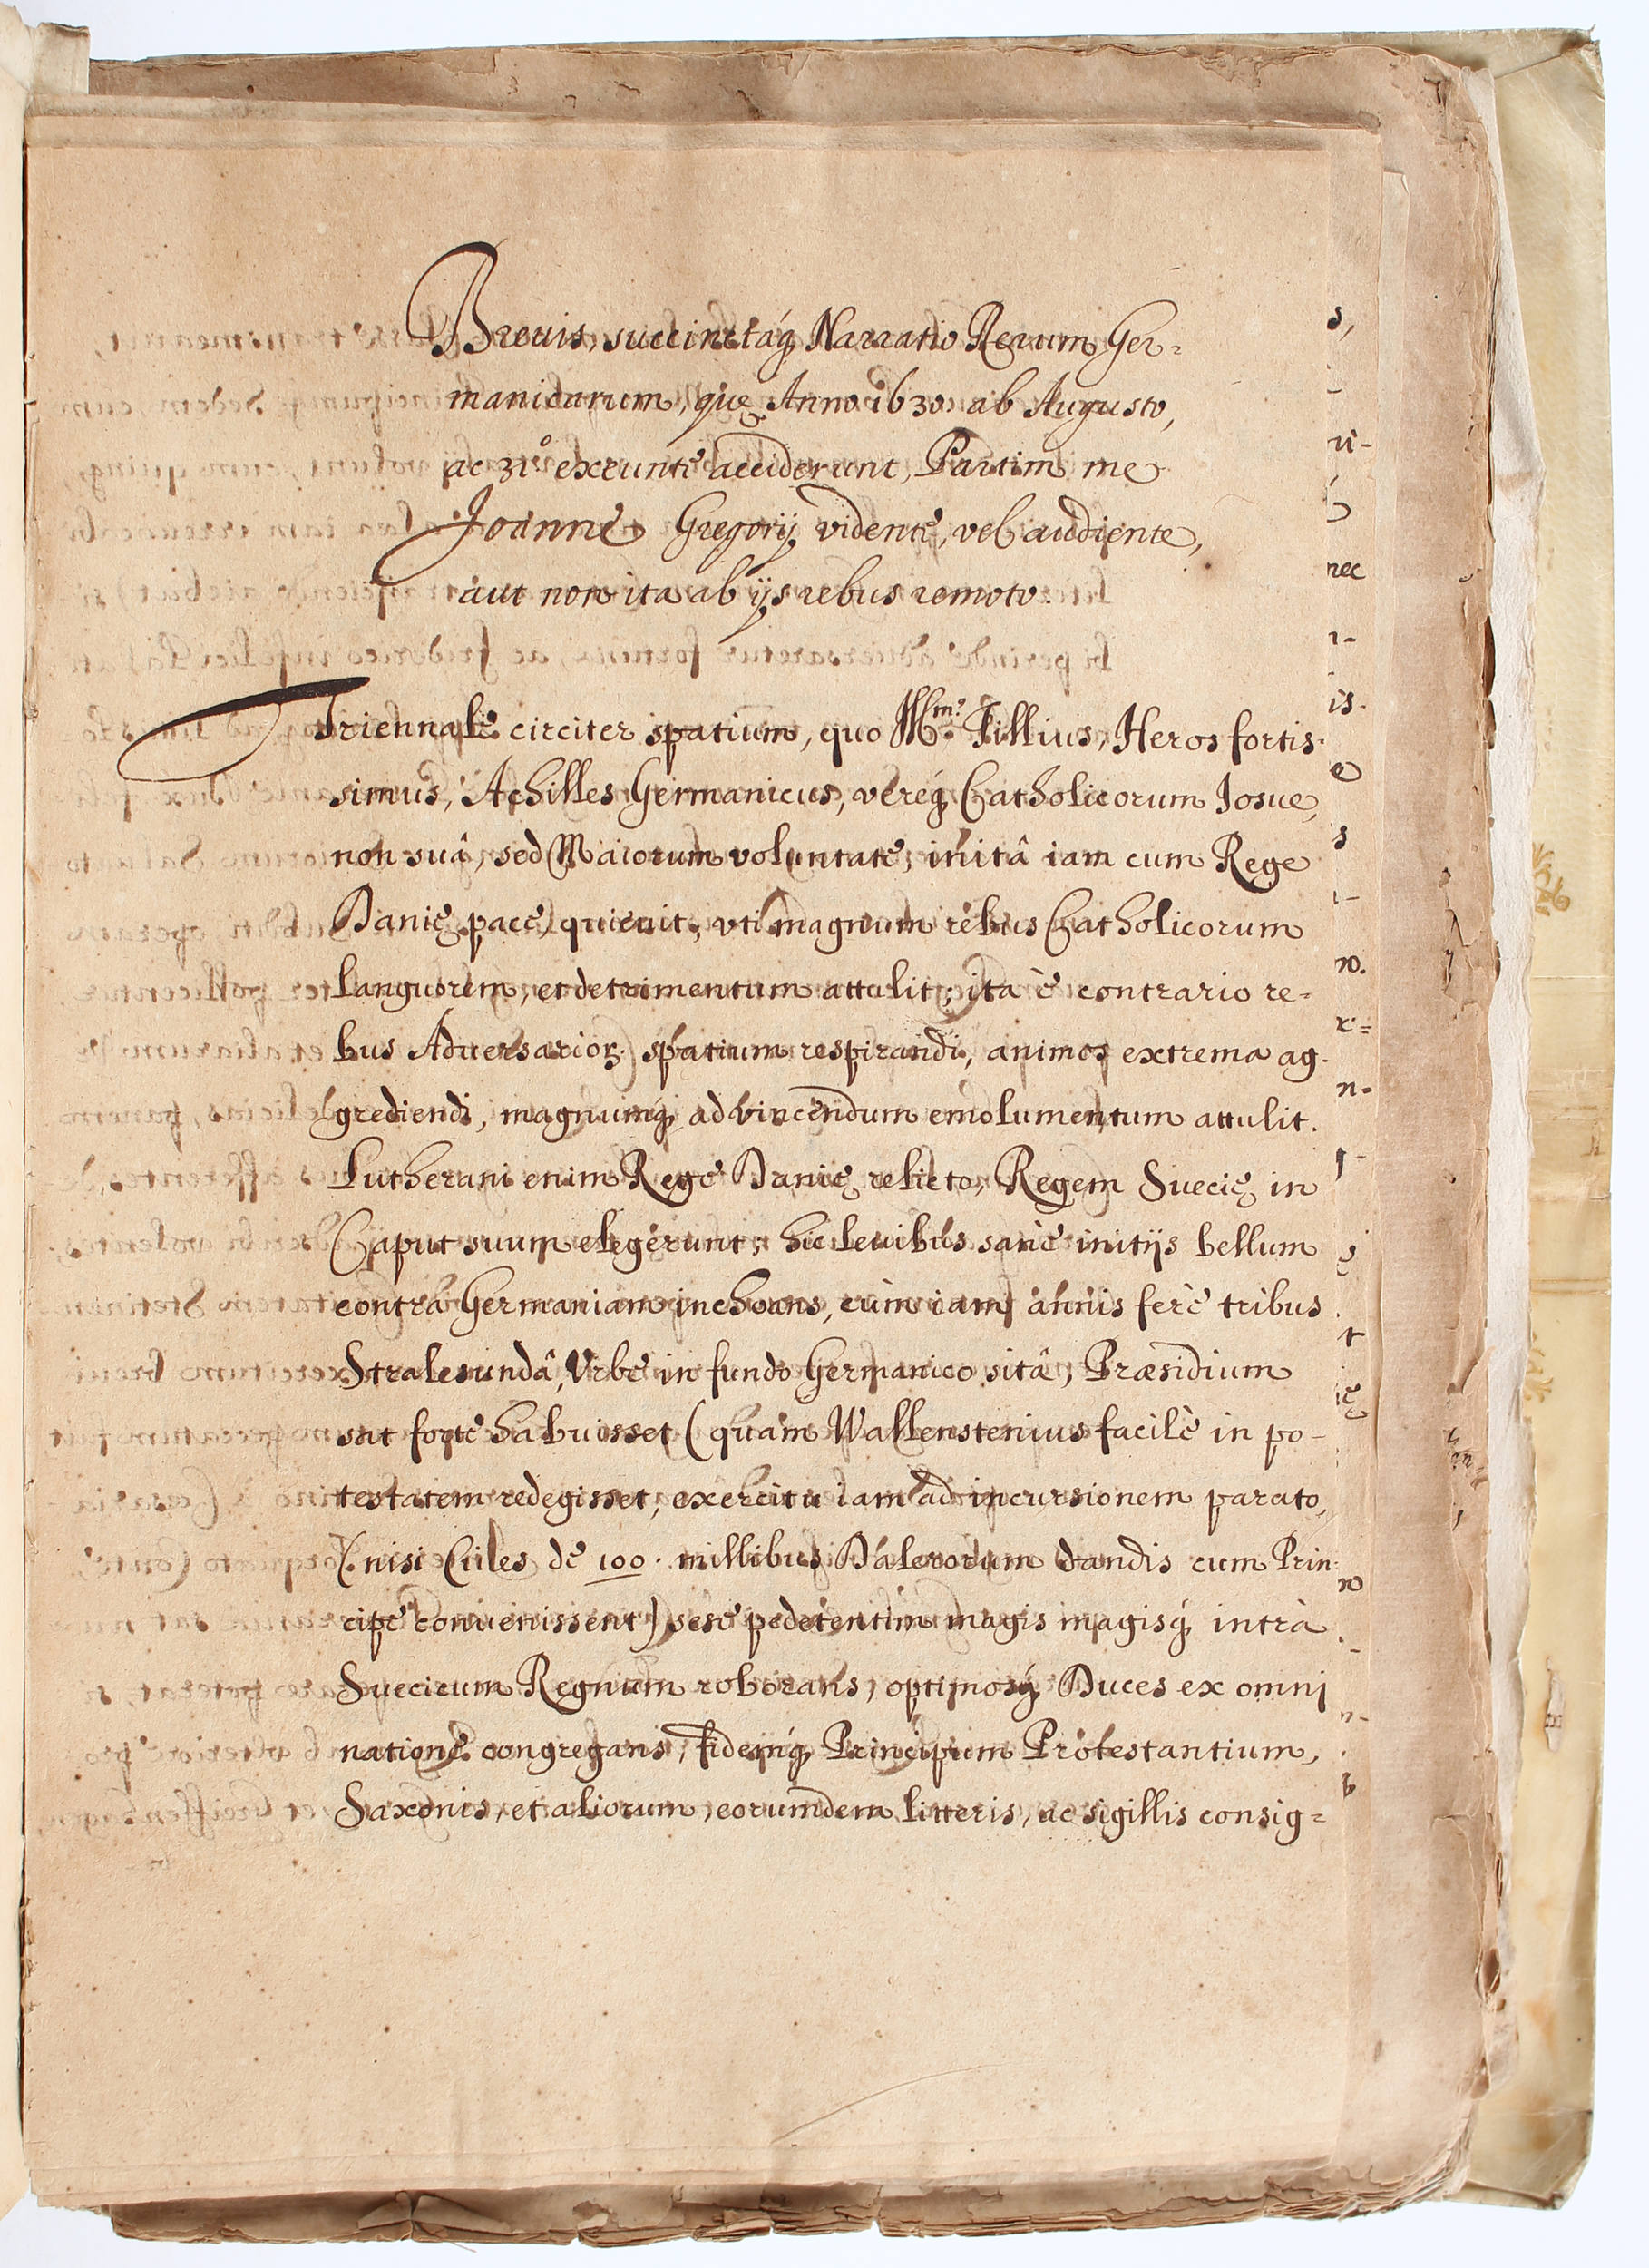 Breuis, succinctaq́ꝫ Narratio Rerum Ger=
manicarum, quę Anno 1630. ab Augusto,
ac 31º exeunte acciderunt, Partim me
Joanne Gregorij vidente, vel audiente,
aut non ita ab ijs rebus remoto.
Triennale circiter spatium, quo Illm̃º. Tillius, Heros fortis-
simus, Achilles Germanicus, vereq́ꝫ Catholicorum Iosue,
non suâ, sed Maiorum voluntate, initâ iam cum Rege
Danię pace, quieuit, vti magnum rebus Catholicorum
languorem, et detrimentum attulit; ita è contrario re=
bus Aduersarioꝝ spatium respirandi, animos extrema ag-
grediendi, magnumq́ꝫ ad vincendum emolumentum attulit.
Lutherani enim Rege Danię relicto, Regem Suecię in
Caput suum elegerunt; hic leuibus sanè initijs bellum
contra Germaniam inchoans, cùm iam annis ferè tribus
Stralesundâ, Vrbe in fundo Germanico sitâ, Præsidium
sat forte habuisset (quam Wallenstenius facilè in po-
testatem redegisset, exercitu iam ad incursionem parato,
(nisi Ciues de 100. millibus Dalerorum dandis cum Prin-
cipe conuenissent) sese pedetentim magis magisq́ꝫ intrà
Suecicum Regnum roborans, optimosq́ꝫ Duces ex omni
natione congregans, fidemq́ꝫ Principum Protestantium,
Saxonis, et aliorum, eorumdem litteris, ac sigillis consig=
s,
ù-
nec
is.
e
s